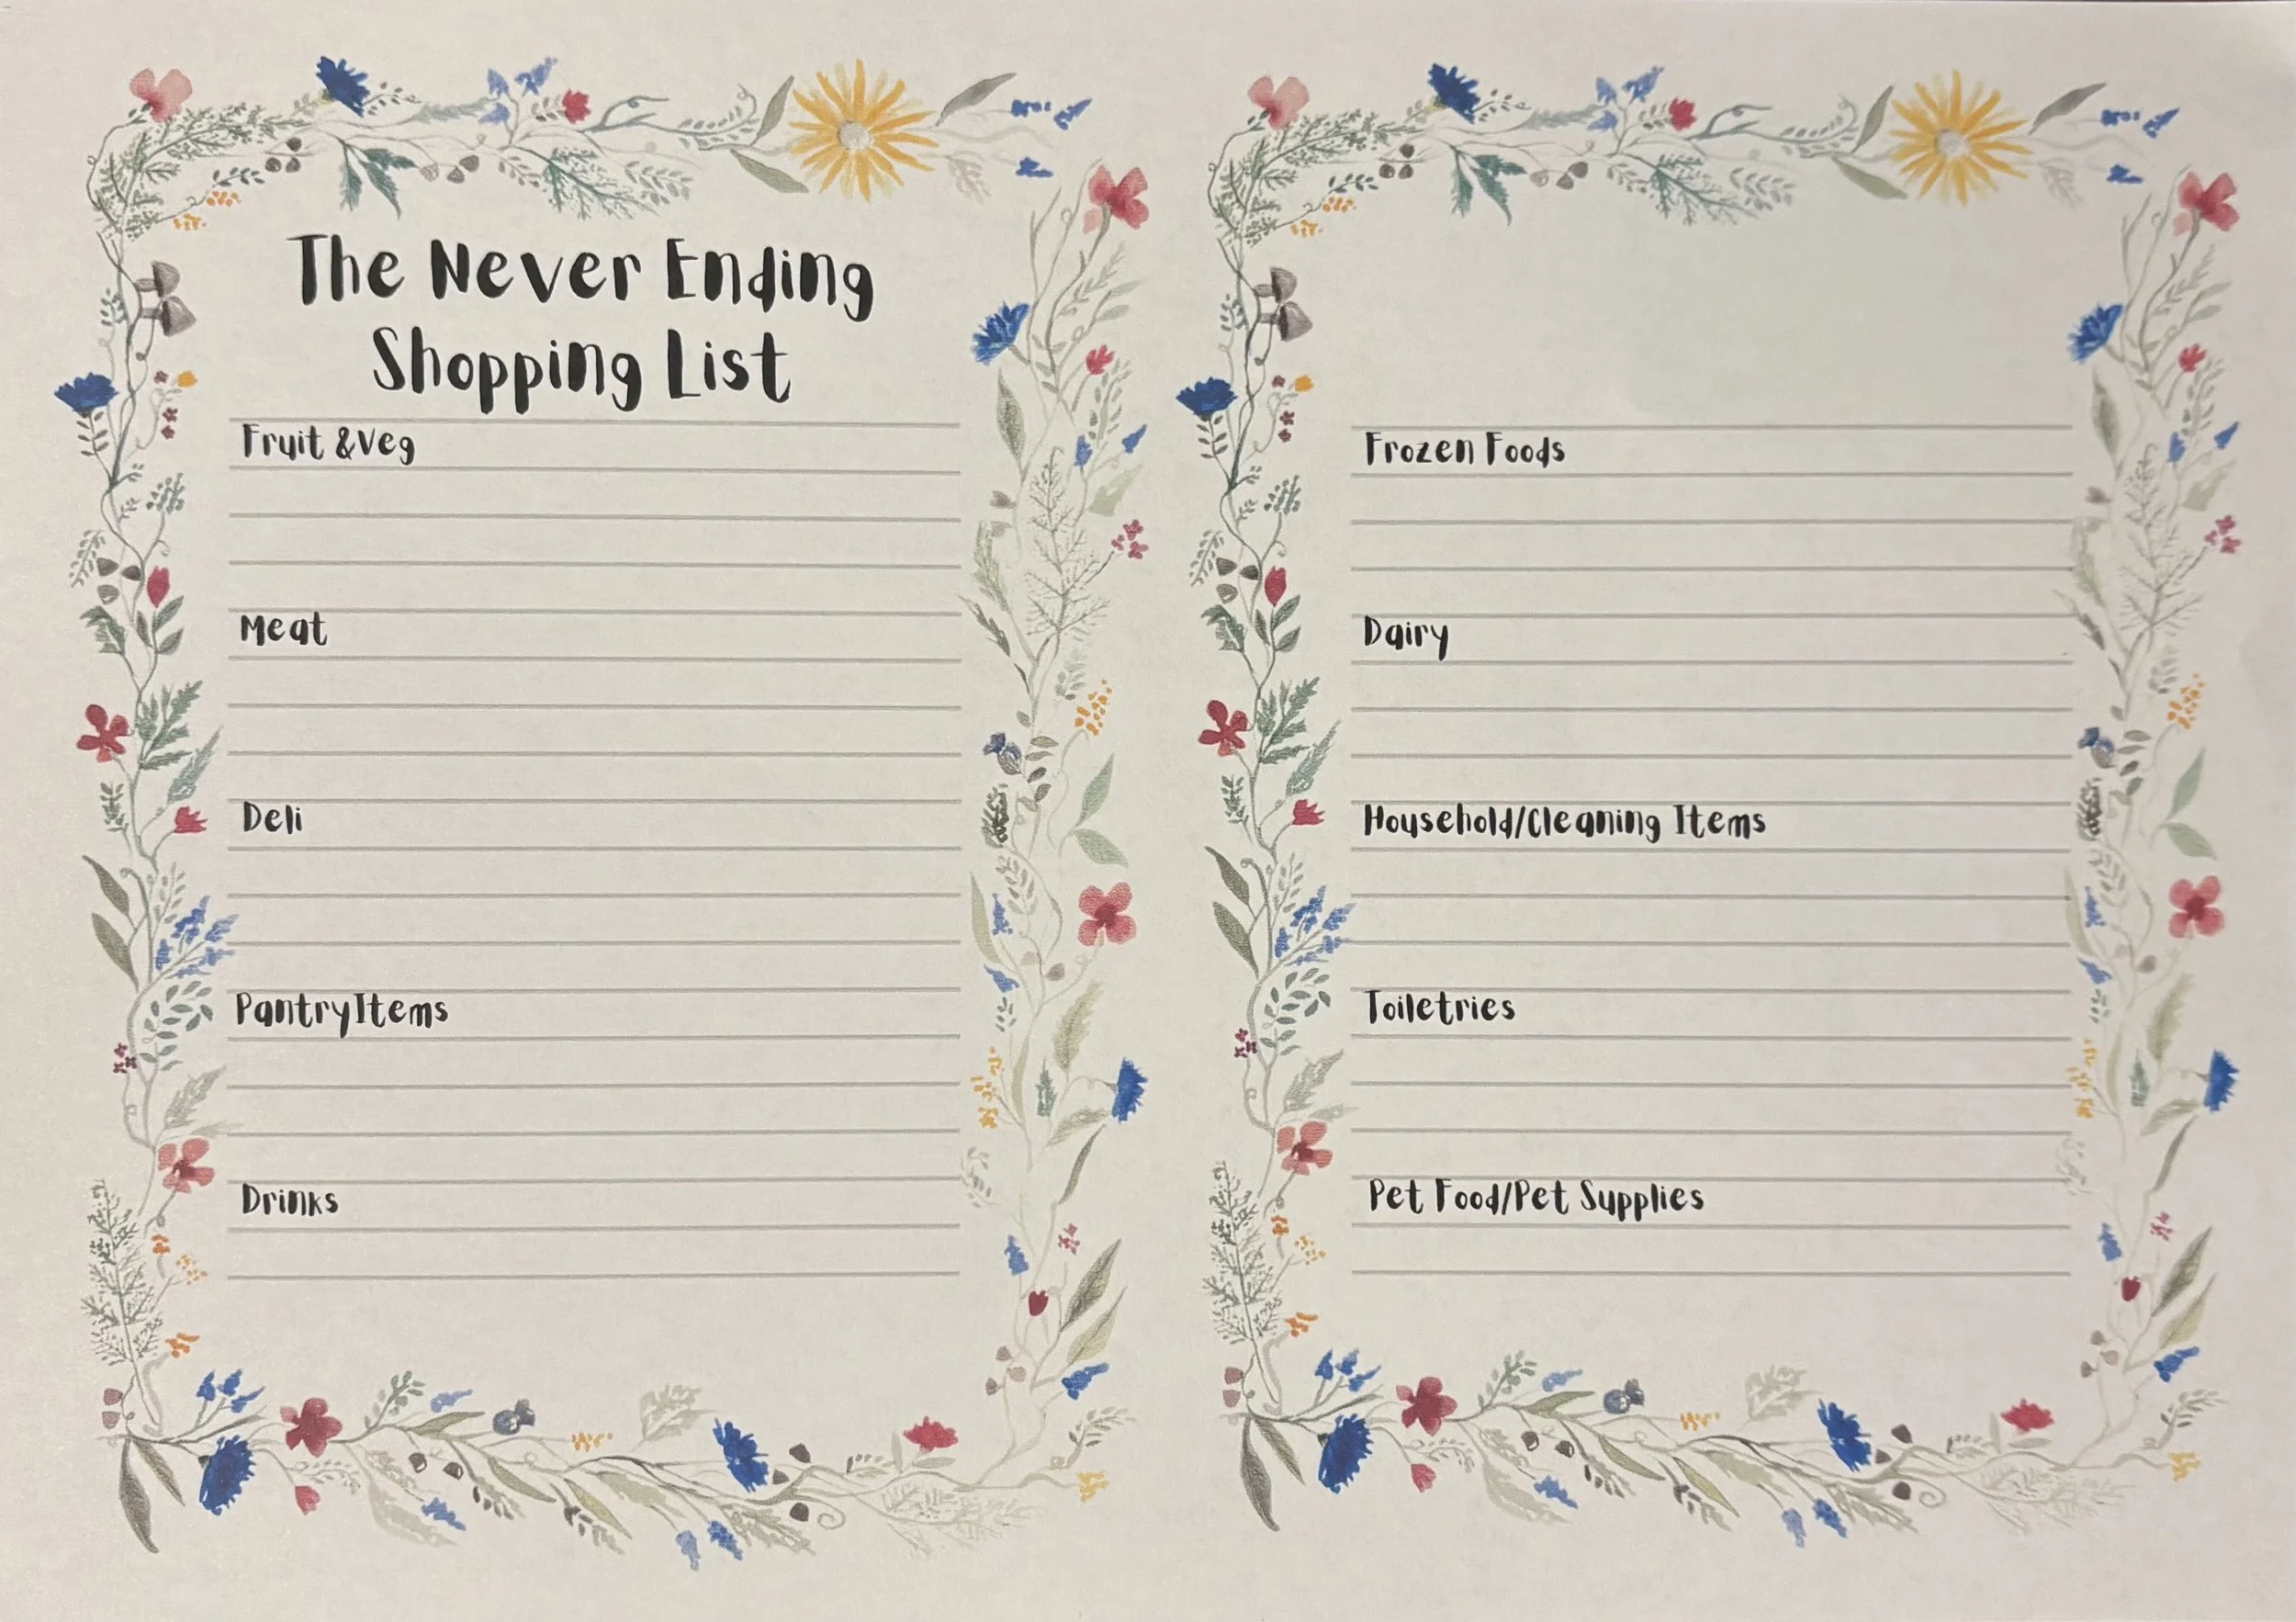 The Never Ending
Shopping List
Fruit &Veg
Meat
Deli
PantryItems
Drinks
Frozen Foods
Dairy
Household/Cleaning Items
Toiletries
Pet Food/Pet Supplies